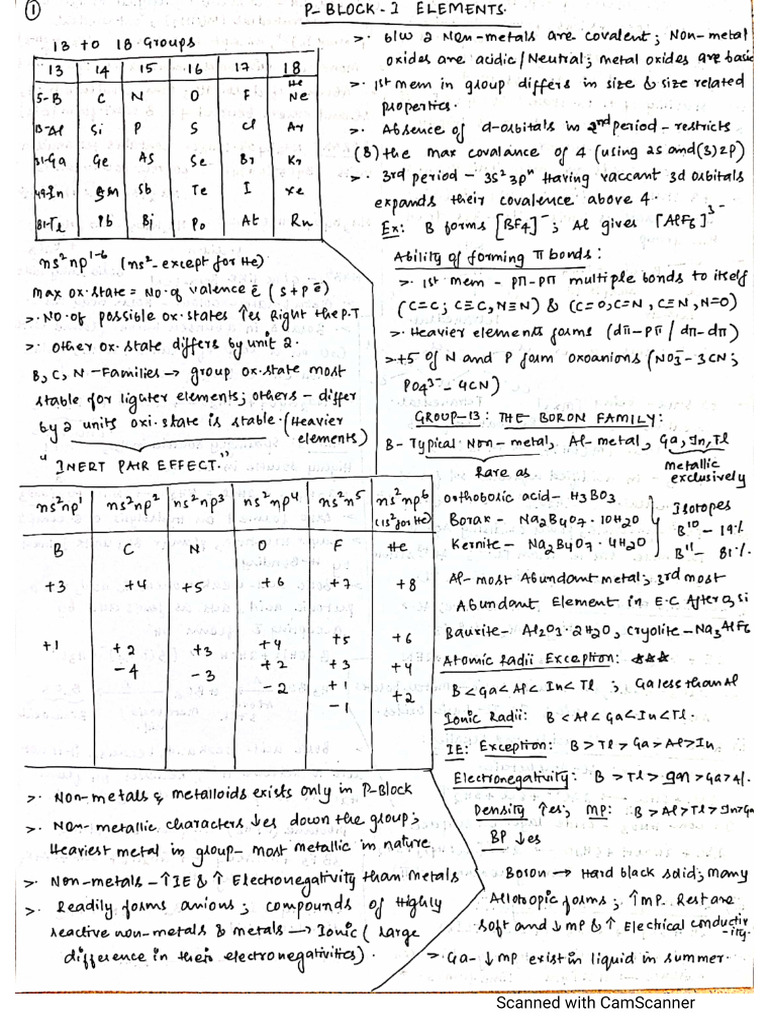 ①
P-BLOCK-I ELEMENTS.
13 to 18 Groups
13 14 15 16 17 18
He
5-B C N O F Ne
13-Al Si P S Cl Ar
31-Ga Ge AS Se Br Kr
49-In Sn Sb Te I Xe
81-Te Pb Bi Po At Rn
ns²np¹⁻⁶ (ns²-except for He)
max ox.state = No.of valence ē (s+p ē)
>. NO.of possible ox.states ↑es Right the P.T
>. other ox.state differs by unit 2.
B, C, N -Families → group ox.state most
stable for ligater elements; others - differ
by 2 units oxi.state is stable. (Heavier
elements)
"INERT PAIR EFFECT."
ns²np¹ ns²np² ns²np³ ns²np⁴ ns²n⁵ ns²np⁶
(1s² for He)
B C N O F He
+3 +4 +5 +6 +7 +8
+1 +2 +3 +4 +5 +6
-4 -3 +2 +3 +4
-2 +1 +2
-1
>. Non-metals & metalloids exists only in P-Block
>. Non-metallic characters ↓es down the group;
Heaviest metal in group - most metallic in nature
>. Non-metals - ↑IE & ↑ Electronegativity than Metals
>. Readily forms anions; compounds of Highly
reactive non-metals & metals → Ionic (large
difference in their electronegativities).
>. b/w 2 Non-metals are covalent; Non-metal
oxides are acidic/Neutral; metal oxides are basic
>. 1st mem in group differs in size & size related
properties.
>. Absence of d-orbitals in 2nd period - restricts
(B) the max covalance of 4 (using 2s and (3) 2p)
>. 3rd period - 3s²3pⁿ Having vaccant 3d orbitals
expands their covalence above 4.
Ex: B forms [BF4]⁻; Al gives [AlF6]³⁻
Ability of forming π bonds:
>. 1st mem - pπ-pπ multiple bonds to itself
(C=C; C≡C, N≡N) & (C=O, C=N, C≡N, N=O)
>. Heavier elements forms (dπ-pπ / dπ-dπ)
>. +5 of N and P form oxoanions (NO3⁻ - 3CN;
PO4³⁻ - 4CN)
GROUP-13: THE BORON FAMILY:
B- Typical Non-metal, Al-metal, Ga, In, Tl
Rare as
metallic
exclusively
orthoboric acid - H3BO3
Borax - Na2B4O7.10H2O
Kernite - Na2B4O7.4H2O
Isotopes
B¹⁰ - 19%
B¹¹ - 81%
Al-most Abundant metal; 3rd most
Abundant Element in E.C After O, Si
Bauxite - Al2O3.2H2O, Cryolite - Na3AlF6
Atomic Radii Exception: ★★★
B < Ga < Al < In < Tl ; Ga less than Al
Ionic Radii: B < Al < Ga < In < Tl.
IE: Exception: B > Tl > Ga > Al > In
Electronegativity: B > Tl > In > Ga > Al.
Density ↑es; MP: B > Al > Tl > In > Ga
BP ↓es
Boron → Hard black solid; many
Allotropic forms; ↑MP. Rest are
soft and ↓MP & ↑ Electrical conductiv
-ity.
>. Ga- ↓MP exist in liquid in summer.
Scanned with CamScanner